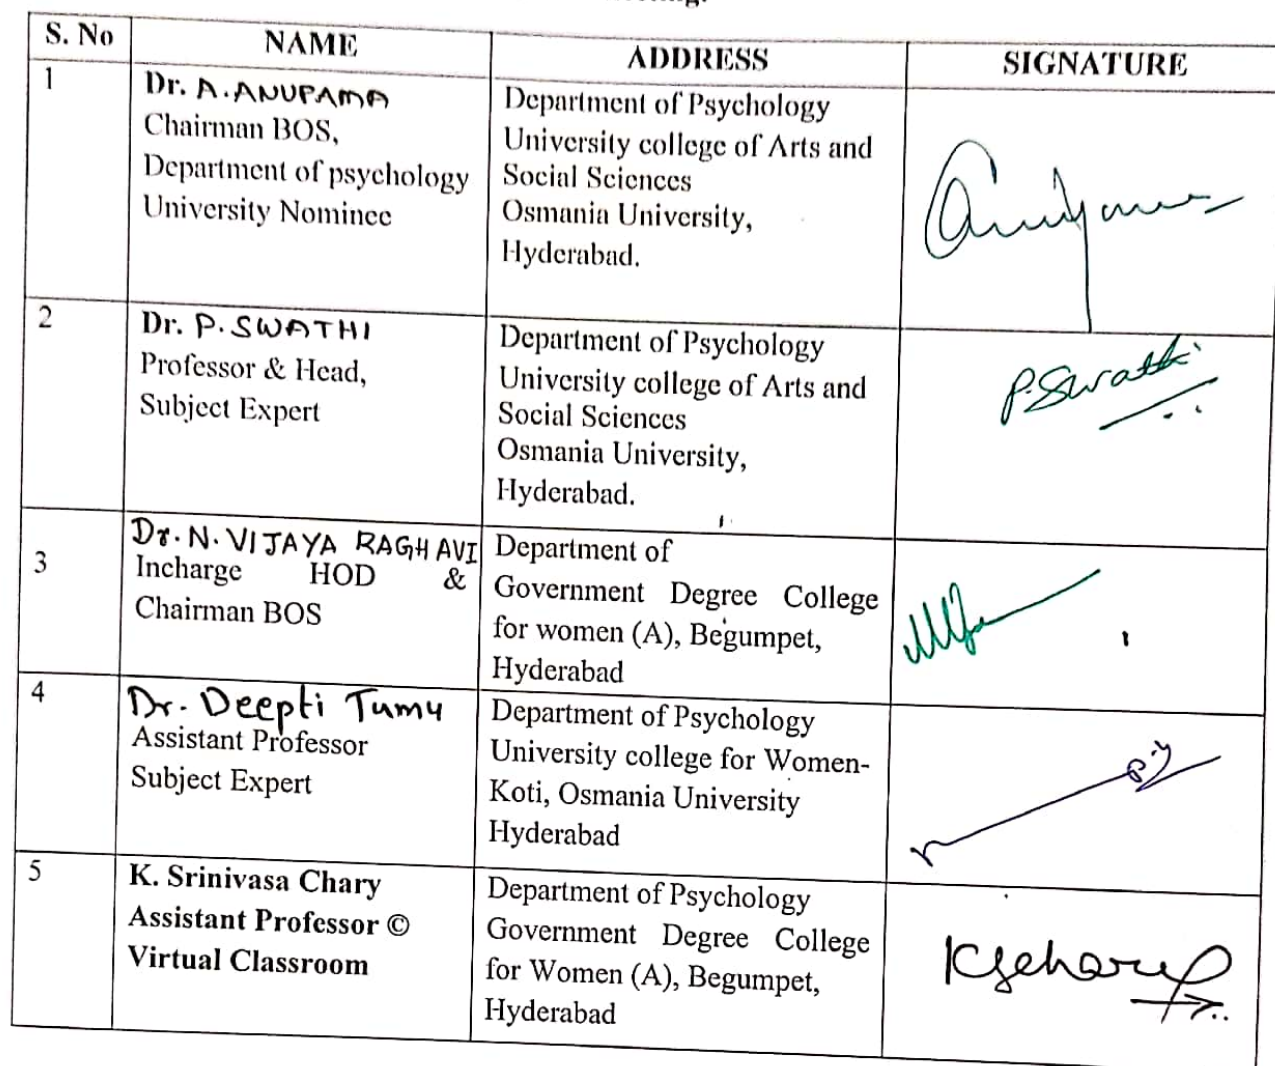 S. No NAME ADDRESS SIGNATURE
1
Dr. A. ANUPAMA
Chairman BOS,
Department of psychology
University Nominee
Department of Psychology
University college of Arts and
Social Sciences
Osmania University,
Hyderabad.
2
Dr. P. SWATHI
Professor & Head,
Subject Expert
Department of Psychology
University college of Arts and
Social Sciences
Osmania University,
Hyderabad.
P. Swathi
3
Dr. N. VIJAYA RAGHAVI
Incharge HOD &
Chairman BOS
Department of
Government Degree College
for women (A), Begumpet,
Hyderabad
4
Dr. Deepti Tumu
Assistant Professor
Subject Expert
Department of Psychology
University college for Women-
Koti, Osmania University
Hyderabad
5
K. Srinivasa Chary
Assistant Professor ©
Virtual Classroom
Department of Psychology
Government Degree College
for Women (A), Begumpet,
Hyderabad